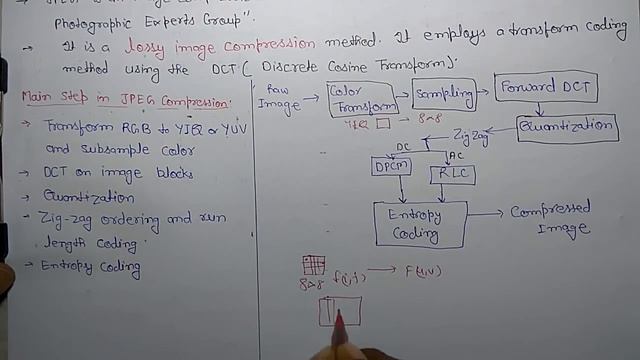 Photographic Experts Group".
→ It is a lossy image compression method. It employs a transform coding
method using the DCT ( Discrete Cosine Transform).
Main Step in JPEG Compression:
→ Transform RGB to YIQ or YUV
and subsample color
→ DCT on image blocks
→ Quantization
→ Zig-zag ordering and run
length coding
→ Entropy Coding
Raw
Image
Color
Transform
Sampling
Forward DCT
YIQ
→ 8*8
Quantization
Zig Zag
DC
AC
DPCM
RLC
Entropy
Coding
Compressed
Image
8*8
f(i,j)
F(u,v)